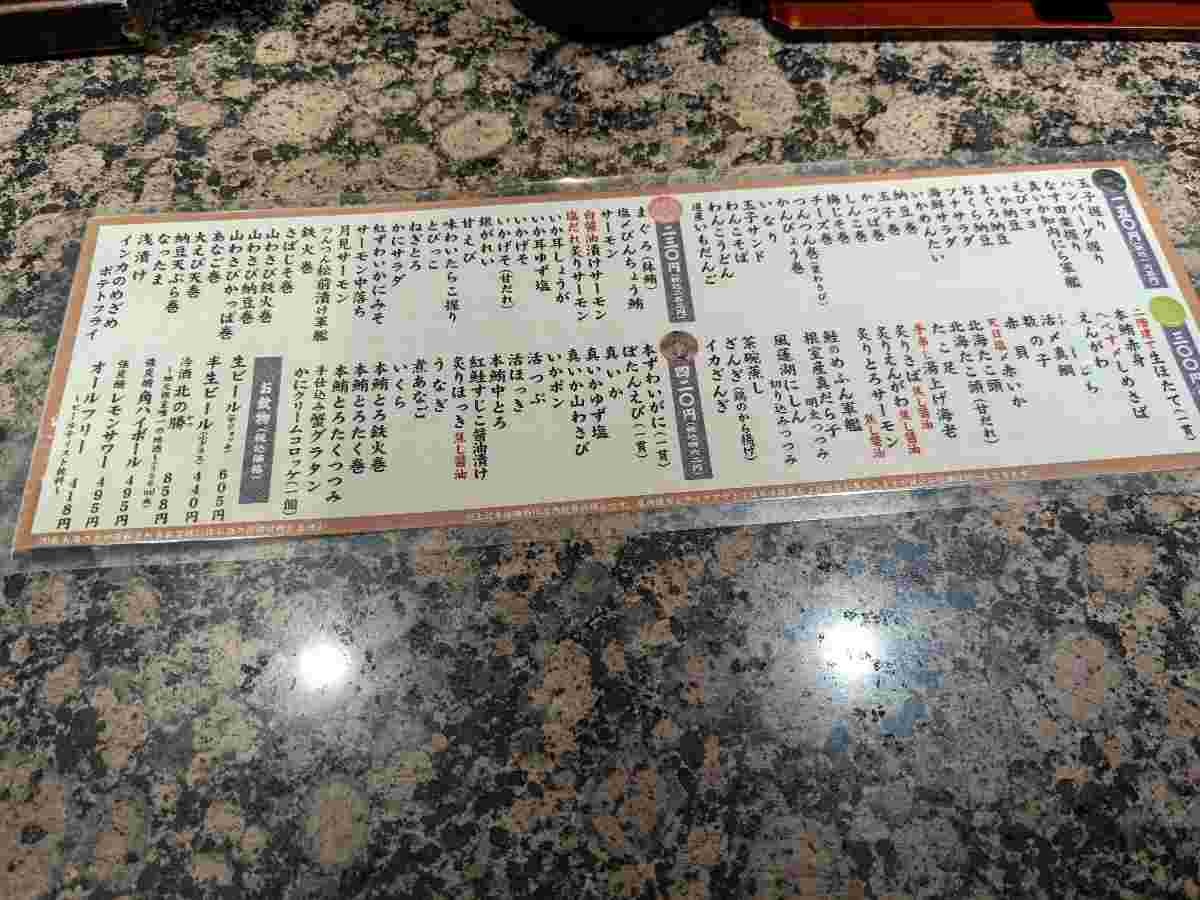 一五〇円
玉子握り
ハンバーグ握り
なす田楽握り
真いか肉にら軍艦
えびマヨ
いか納豆
まぐろ納豆
おくら納豆
ツナサラダ
海鮮サラダ
いかめんたい
納豆巻
玉子巻
かっぱ巻
しんこ巻
梅じそ巻
チーズ巻
つんつん巻（葉わさび）
かんぴょう巻
いなり
玉子サンド
わんこそば
わんこうどん
道産いもだんご
二三〇円
まぐろ（鉢鮪）
塩〆びんちょう鮪
サーモン
白醤油漬けサーモン
塩だれ炙りサーモン
いか耳しょうが
いか耳ゆず塩
いかげそ
いかげそ（甘だれ）
銀がれい
甘えび
味わいたらこ握り
とびっこ
ねぎとろ
かにサラダ
紅ずわいかにみそ
サーモン中落ち
月見サーモン
つんつん松前漬け軍艦
鉄火巻
さばじそ巻
山わさび鉄火巻
山わさび納豆巻
山わさびかっぱ巻
あなご巻
大えび天巻
納豆天ぷら巻
なったま
浅漬け
インカのめざめ
ポテトフライ
三〇〇円
二階建て生ほたて（一貫）
本鮪赤身
へべす〆しめさば
えんがわ
活〆真鯛
数の子
赤貝
天日塩〆赤いか
北海たこ頭
北海たこ頭（甘だれ）
たこ足
湯上げ海老
炙りさば 焦し醤油
炙りえんがわ 焦し醤油
炙りとろサーモン 焦し醤油
鮭のめふん軍艦
根室産真だら子
明太つつみ
風蓮湖にしん
切り込みつつみ
茶碗蒸し
ざんぎ（鶏のから揚げ）
イカざんぎ
四二〇円
本ずわいがに（一貫）
ぼたんえび（一貫）
真いか
真いかゆず塩
真いか山わさび
いかポン
活つぶ
活ほっき
本鮪中とろ
紅鮭すじこ醤油漬け
炙りほっき 焦し醤油
うなぎ
煮あなご
いくら
本鮪とろ鉄火巻
本鮪とろたく巻
本鮪とろたくつつみ
手仕込み蟹グラタン
かにクリームコロッケ（一個）
お飲物（税込価格）
生ビール（中ジョッキ） 605円
半生ビール（小グラス） 440円
冷酒 北の勝 858円
角ハイボール 495円
レモンサワー 495円
オールフリー 418円
～ビールテイスト飲料～